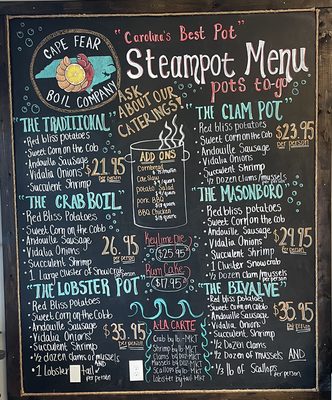 CAPE FEAR
BOIL COMPANY
"Carolina's Best Pot"
Steampot Menu
pots to-go
ASK
ABOUT OUR
CATERINGS!
"THE TRADITIONAL"
Red bliss potatoes
Sweet Corn on the Cob
Andouille Sausage
Vidalia Onions
Succulent Shrimp
$21.95
per person
"THE CRAB BOIL"
Red Bliss Potatoes
Sweet Corn on the Cob
Andouille Sausage
Vidalia Onions
Succulent Shrimp
1 Large Cluster of Snow Crab
26.95
per person
"THE LOBSTER POT"
Red Bliss Potatoes
Sweet Corn on the Cob
Andouille Sausage
Vidalia Onions
Succulent Shrimp
½ dozen clams or mussels
AND
1 lobster tail
$35.95
per person
ADD ONS
Cornbread
Cole Slaw
potato Salad
pork BBQ
BBQ Chicken
Key Lime Pie
$25.95
Rum Cake
$17.95
A LA CARTE
Crab by lb-MKT
Shrimp by lb-MKT
Clams by Doz-MKT
Mussels by Doz-MKT
Scallops by lb-MKT
lobster by tail MKT
"THE CLAM POT"
Red bliss potatoes
Sweet Corn on the Cob
Andouille Sausage
Vidalia Onions
Succulent Shrimp
½ dozen Clams/mussels
$23.95
per person
"THE MASONBORO"
Red bliss potatoes
Sweet Corn on the Cob
Andouille Sausage
Vidalia Onions
Succulent Shrimp
1 Cluster Snowcrab
½ dozen Clams/mussels
$29.95
per person
"THE BIVALVE"
Red bliss Potatoes
Sweet Corn on the Cob
Andouille Sausage
Vidalia Onions
Succulent Shrimp
½ Dozen clams
½ Dozen of mussels AND
⅓ lb of Scallops
$35.95
per person